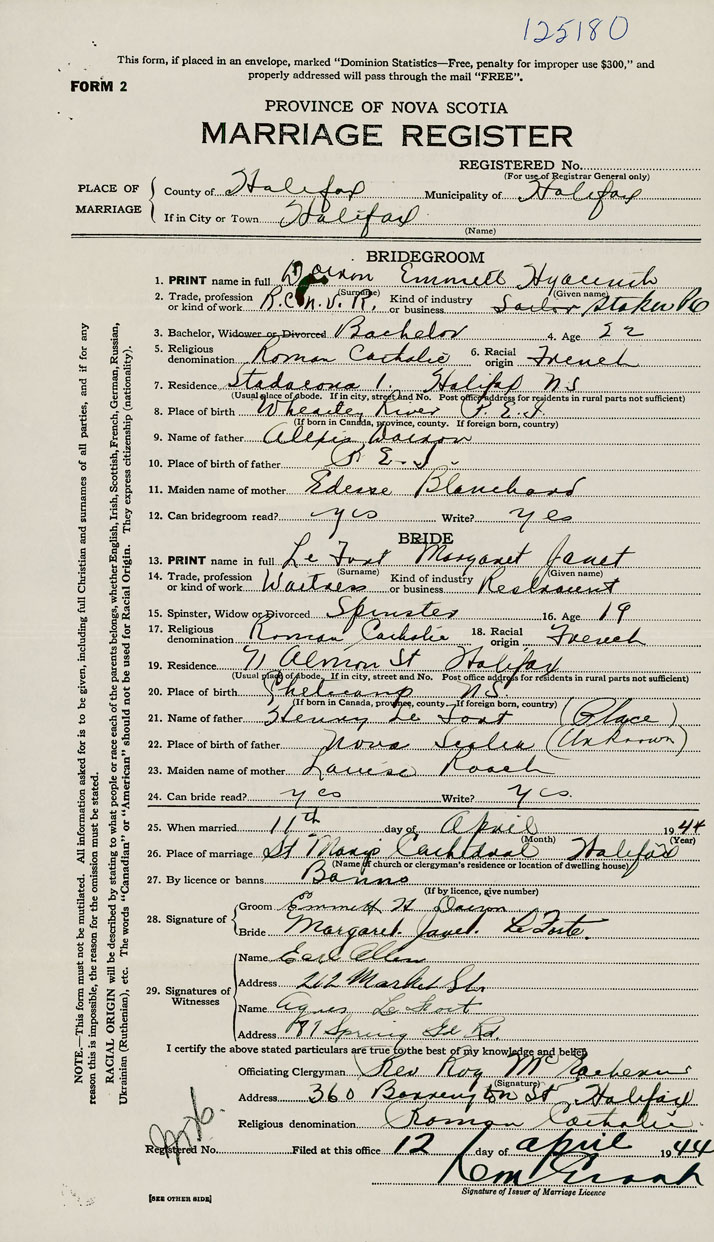 125180
This form, if placed in an envelope, marked "Dominion Statistics—Free, penalty for improper use $300," and
properly addressed will pass through the mail "FREE".
FORM 2
PROVINCE OF NOVA SCOTIA
MARRIAGE REGISTER
REGISTERED No.
(For use of Registrar General only)
PLACE OF MARRIAGE
County of Halifax Municipality of Halifax
If in City or Town Halifax
(Name)
BRIDEGROOM
1. PRINT name in full Doiron Emmett Hyacinth
(Surname) (Given name)
2. Trade, profession or kind of work R.C.N.V.R. Kind of industry or business Sailor Stoker
3. Bachelor, Widower or Divorced Bachelor 4. Age 22
5. Religious denomination Roman Catholic 6. Racial origin French
7. Residence Stadacona 1. Halifax NS
(Usual place of abode. If in city, street and No. Post office address for residents in rural parts not sufficient)
8. Place of birth Wheatley River P.E.I
(If born in Canada, province, county. If foreign born, country)
9. Name of father Doiron
10. Place of birth of father P.E.I.
11. Maiden name of mother Blanchard
12. Can bridegroom read? yes Write? yes
BRIDE
13. PRINT name in full Le Fort Margaret Janet
(Surname) (Given name)
14. Trade, profession or kind of work Waitress Kind of industry or business Restraunt
15. Spinster, Widow or Divorced Spinster 16. Age 19
17. Religious denomination Roman Catholic 18. Racial origin French
19. Residence 71 Almon St Halifax
(Usual place of abode. If in city, street and No. Post office address for residents in rural parts not sufficient)
20. Place of birth N.S.
(If born in Canada, province, county. If foreign born, country)
21. Name of father Henry Le Fort (Place
22. Place of birth of father Nova Scotia (Unknown)
23. Maiden name of mother Louise Roach
24. Can bride read? yes Write? yes.
25. When married 11th day of April 1944
(Month) (Year)
26. Place of marriage St Marys Cathedral Halifax
(Name of church or clergyman's residence or location of dwelling house)
27. By licence or banns Banns
(If by licence, give number)
28. Signature of
Groom Emmett H Doiron
Bride Margaret Janet LeForte.
29. Signatures of Witnesses
Name Earl Allen
Address 212 Market St.
Name Agnes
Address Spring Gd Rd.
I certify the above stated particulars are true to the best of my knowledge and belief.
Officiating Clergyman Rev Roy McEachern
(Signature)
Address 360 Barrington St Halifax
Religious denomination Roman Catholic
Registered No. Filed at this office 12 day of april 1944
Signature of Issuer of Marriage Licence
[SEE OTHER SIDE]
NOTE.—This form must not be mutilated. All information asked for is to be given, including full Christian and surnames of all parties, and if for any
reason this is impossible, the reason for the omission must be stated.
RACIAL ORIGIN will be described by stating to what people or race each of the parents belongs, whether English, Irish, Scottish, French, German, Russian,
Ukrainian (Ruthenian), etc. The words "Canadian" or "American" should not be used for Racial Origin. They express citizenship (nationality).